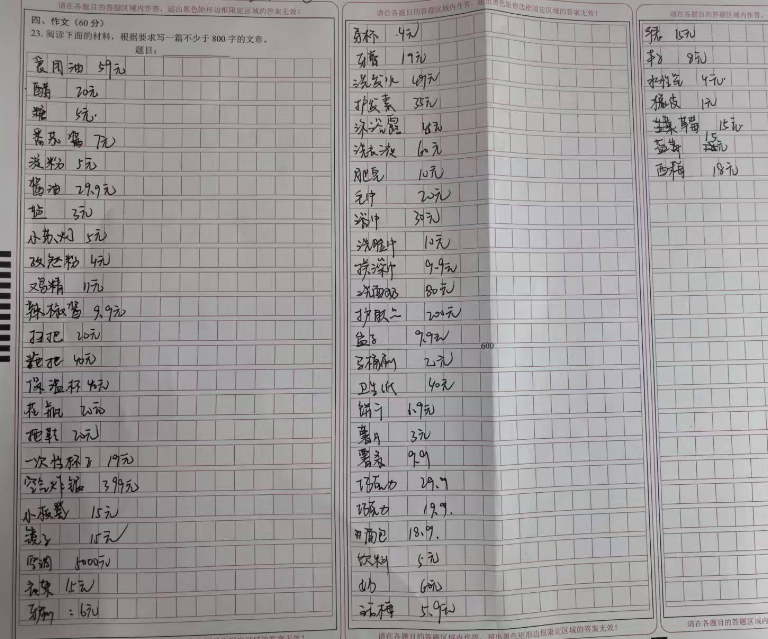 请在各题目的答题区域内作答,超出黑色矩形边框限定区域的答案无效!
四、作文(60分)
23. 阅读下面的材料,根据要求写一篇不少于 800 字的文章。
题目:
食用油 59元
醋 20元
糖 5元
番茄酱 7元
淀粉 5元
酱油 29.9元
盐 3元
小苏打 5元
孜然粉 4元
鸡精 11元
辣椒酱 9.9元
扫把 20元
拖把 40元
保温杯 40元
花瓶 20元
拖鞋 20元
一次性杯子 19元
空气炸锅 399元
小板凳 15元
镜子 15元
空调 5000元
衣架 15元
牙刷:6元
请在各题目的答题区域内作答,超出黑色矩形边框限定区域的答案无效!
请在各题目的答题区域内作答,超出黑色矩形边框限定区域的答案无效!
牙杯 4元
牙膏 19元
洗发水 49元
护发素 35元
沐浴露 45元
洗衣液 60元
肥皂 10元
毛巾 20元
浴巾 30元
洗脸巾 10元
搓澡巾 9.9元
洗面奶 80元
护肤品 200元
盆子 9.9元
600
马桶刷 20元
卫生纸 40元
饼干 6.9元
薯片 3元
薯条 9.9
巧克力 29.9
巧克力 19.9.
面包 18.9.
饮料 5元
奶 60元
5.9元
请在各题目的答题区域内作答,超出黑色矩形边框限定区域的答案无效!
请在各题目的答题区域内作答,超出黑色矩形边框限定区域
15元
8元
4元
橡皮 1元
草莓 15元
15元
西梅 18元
请在各题目的答题区域内